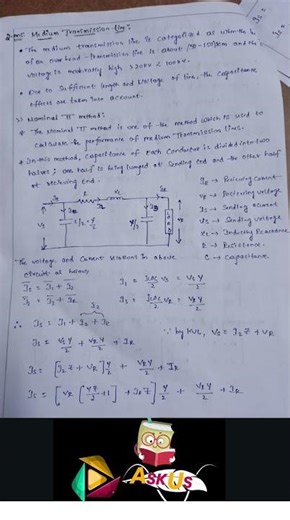 2-ms: Medium Transmission line:
• The medium transmission line is categorized as when the length
of an over head transmission line is about (50-150)km and the
voltage is moderately high > 20KV < 100KV.
• Due to sufficient length and voltage of line, the capacitance
effects are taken into account.
Nominal "Π" method:
* The nominal Π method is one of the method which is used to
calculate the performance of medium transmission lines.
* In this method, capacitance of each conductor is divided into two
halves; one half is being lumped at sending end and the other half
at receiving end.
IR → Receiving current
VR → Receiving voltage
IS → Sending current
VS → Sending voltage
XL → Inductive Reactance
R → Resistance
C → Capacitance
R XL
Y/2
The voltage and current relations in above
circuit as below
I2 = I3 + IR
IS = I1 + I2
I1 = jωc/2 VS = VS Y/2
I3 = jωc/2 VR = VR Y/2
∴ IS = I1 + I3 + IR
IS = VS Y/2 + VR Y/2 + IR
∵ by KVL, VS = I2 Z + VR
IS = [I2 Z + VR] Y/2 + VR Y/2 + IR
IS = [VR [YZ/2 + 1] + IR Z] Y/2 + VR Y/2 + IR
ASKUS